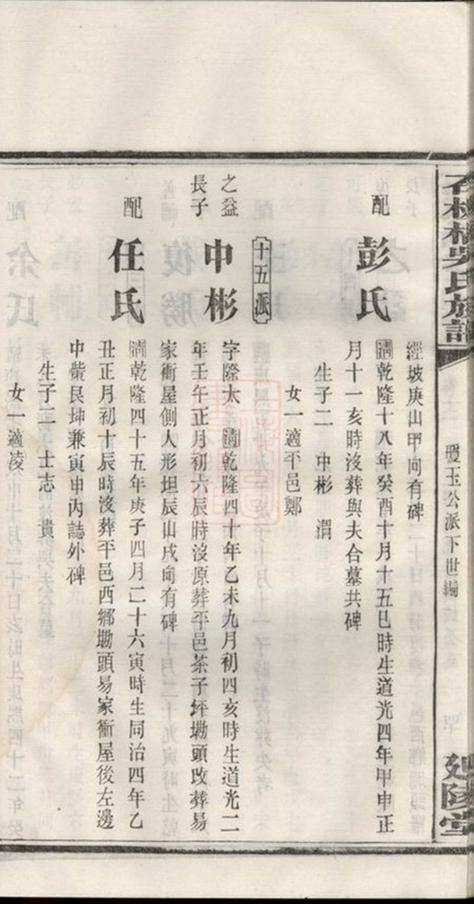 吳氏族譜
璧玉公派下世編
延陵堂
經坡庚山甲向有碑
配 彭氏 清乾隆十八年癸酉十月十五巳時生道光四年甲申正
月十一亥時沒葬與夫合墓共碑
生子二 中彬 渭
女一適平邑鄭
十五派
之益長子 中彬 字際太 清乾隆四十年乙未九月初四亥時生道光二
年壬午正月初六辰時沒原葬平邑茶子坪坳頭改葬易
家衝屋側人形坦辰山戌向有碑
配 任氏 清乾隆四十五年庚子四月二十六寅時生同治四年乙
丑正月初十辰時沒葬平邑西鄉坳頭易家衝屋後左邊
中嘴艮坤兼寅申內誌外碑
生子二 士志 貴
女一適凌